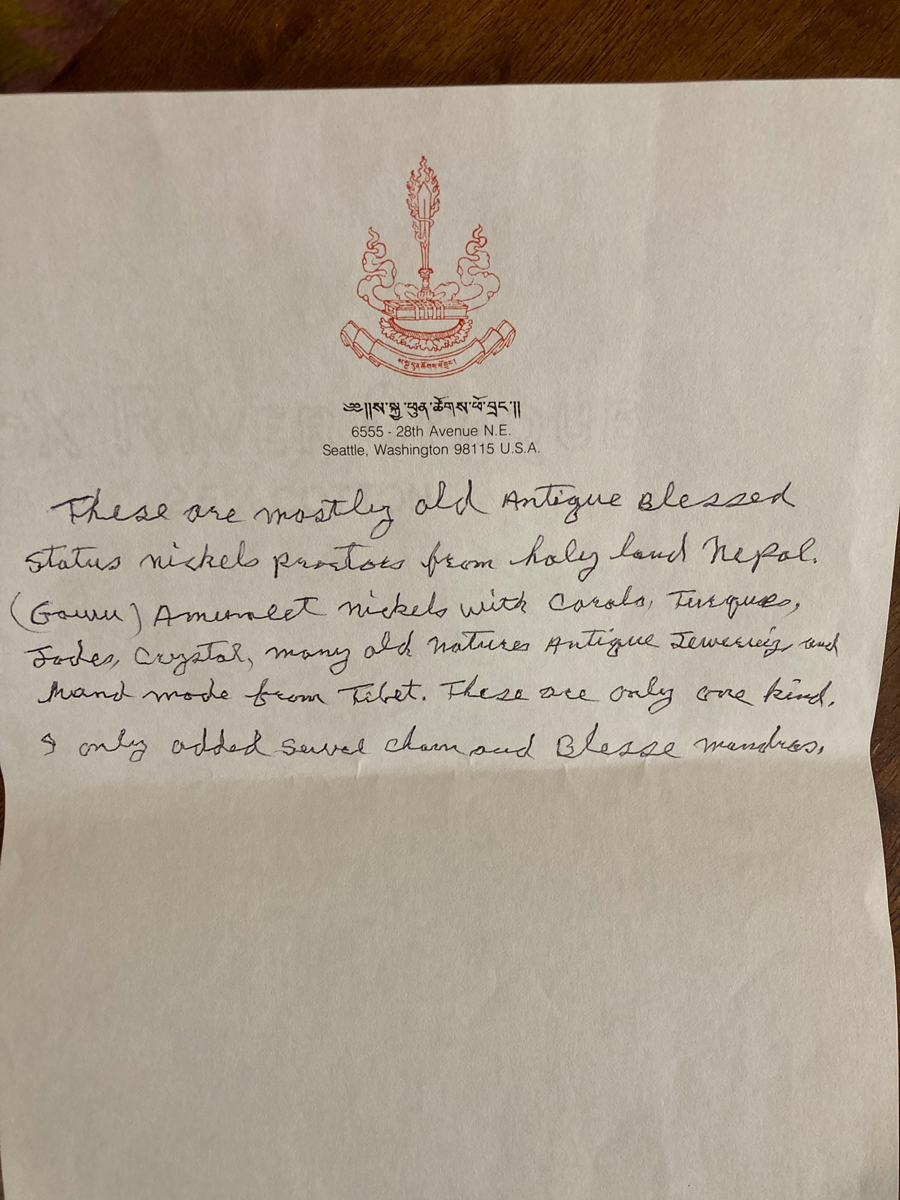 ས་སྐྱ་ཕུན་ཚོགས་ཕོ་བྲང་།
༄༅།།ས་སྐྱ་ཕུན་ཚོགས་ཕོ་བྲང་།།
6555 - 28th Avenue N.E.
Seattle, Washington 98115 U.S.A.
These are mostly old Antique Blessed
Status nickels from holy land Nepol.
(Gauu) nickels with Corals, Turques,
Jades, Crystal, many old Natures Antique and
Hand mode from Tibet. These are only one kind.
I only added chain and Blesse mandras.